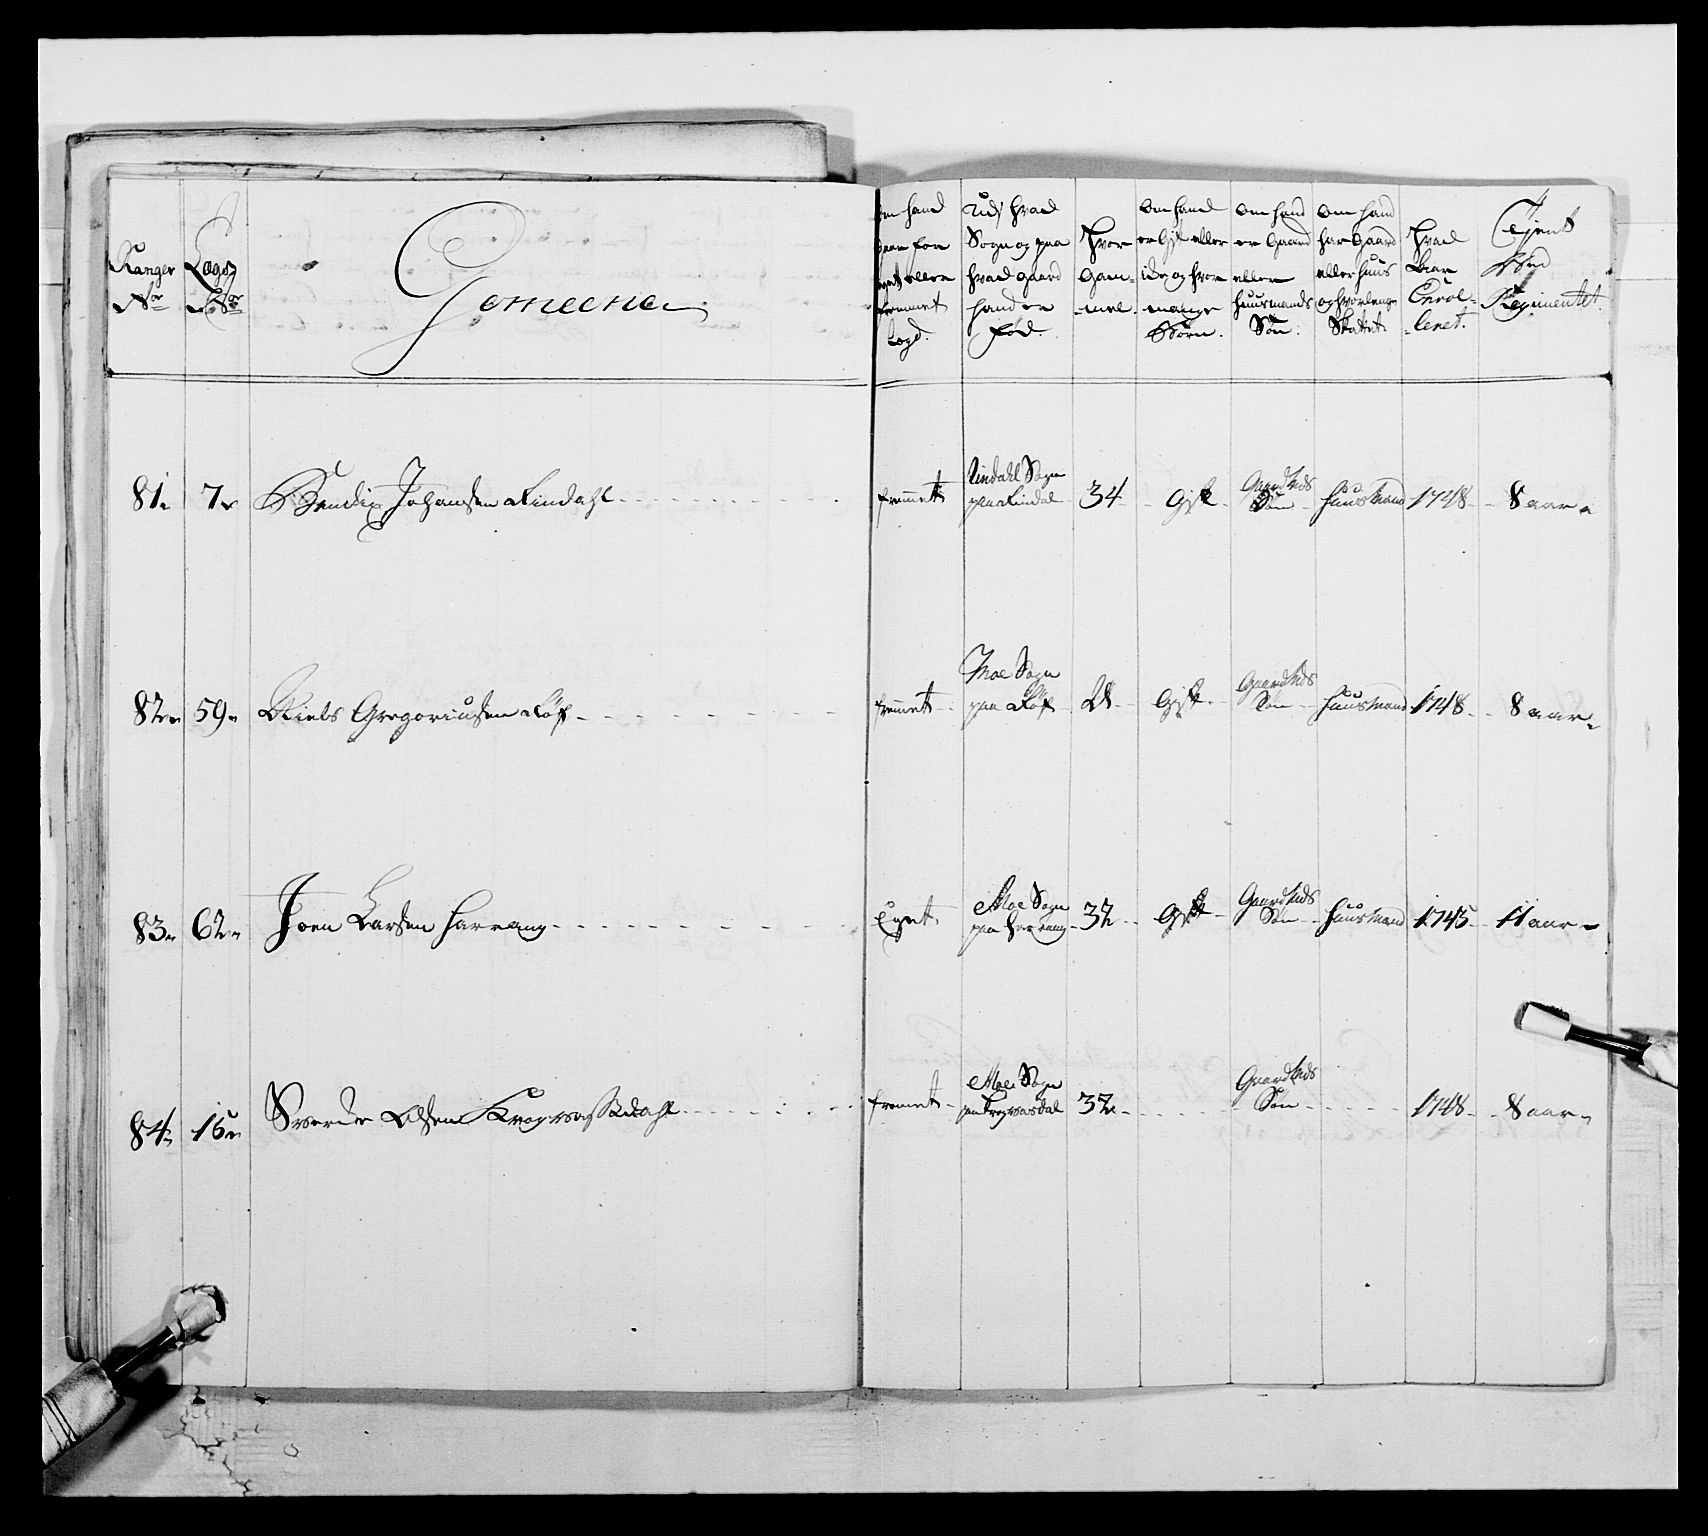 Ranger
No
Lægs
No
Gemeene
om hand
er for
eget eller
fremmet
Lægd.
Udj hvad
Sogn og paa
hvad gaard
hand er
fød.
Hvor
Gam-
mel.
Om hand
er Gift eller
ide og hvor
mange
Børn.
Om hand
er Gaard
eller
huusmands
Søn.
Om hand
har Gaard
eller huus
og hvorlenge
Skattet.
Hvad
Aar
Enrol-
leret.
Tjent
Ved
Regimentet.
81. 7. Bendix Johansen Rindahl fremmet Rindahl Sogn paa Rindal 34 Gift Gaardmds Søn huusmand 1748 8 aar
82. 59. Niels Gregoriussen Røf fremmet Moe Sogn paa Røf 28 Gift Gaardmds Søn huusmand 1748 8 aar
83. 62. Joen Larsen Harrang Eget Moe Sogn paa Harrang 32 Gift Gaardmds Søn huusmand 1745 11 aar
84. 15. Olsen fremmet Moe Sogn paa 32 Gaardmds Søn 1748 8 aar